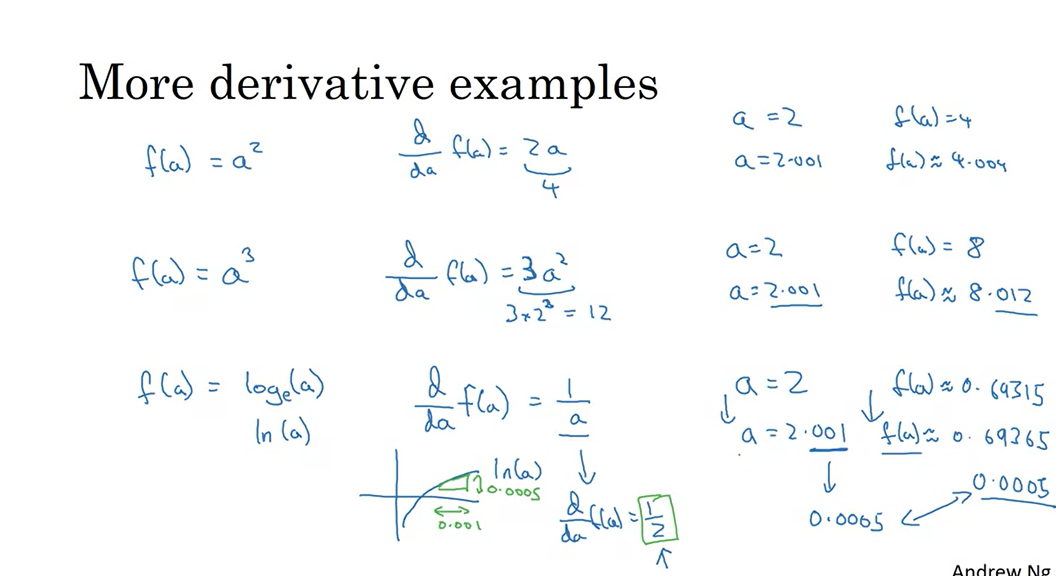 More derivative examples
f(a) = a²
d/da f(a) = 2a
4
a = 2 f(a) = 4
a = 2.001 f(a) ≈ 4.004
f(a) = a³
d/da f(a) = 3a²
3×2³ = 12
a = 2 f(a) = 8
a = 2.001 f(a) ≈ 8.012
f(a) = logₑ(a)
ln(a)
d/da f(a) = 1/a
d/da f(a) = 1/2
a = 2 f(a) ≈ 0.69315
a = 2.001 f(a) ≈ 0.69365
0.0005
0.0005
ln(a)
0.0005
0.001
Andrew Ng